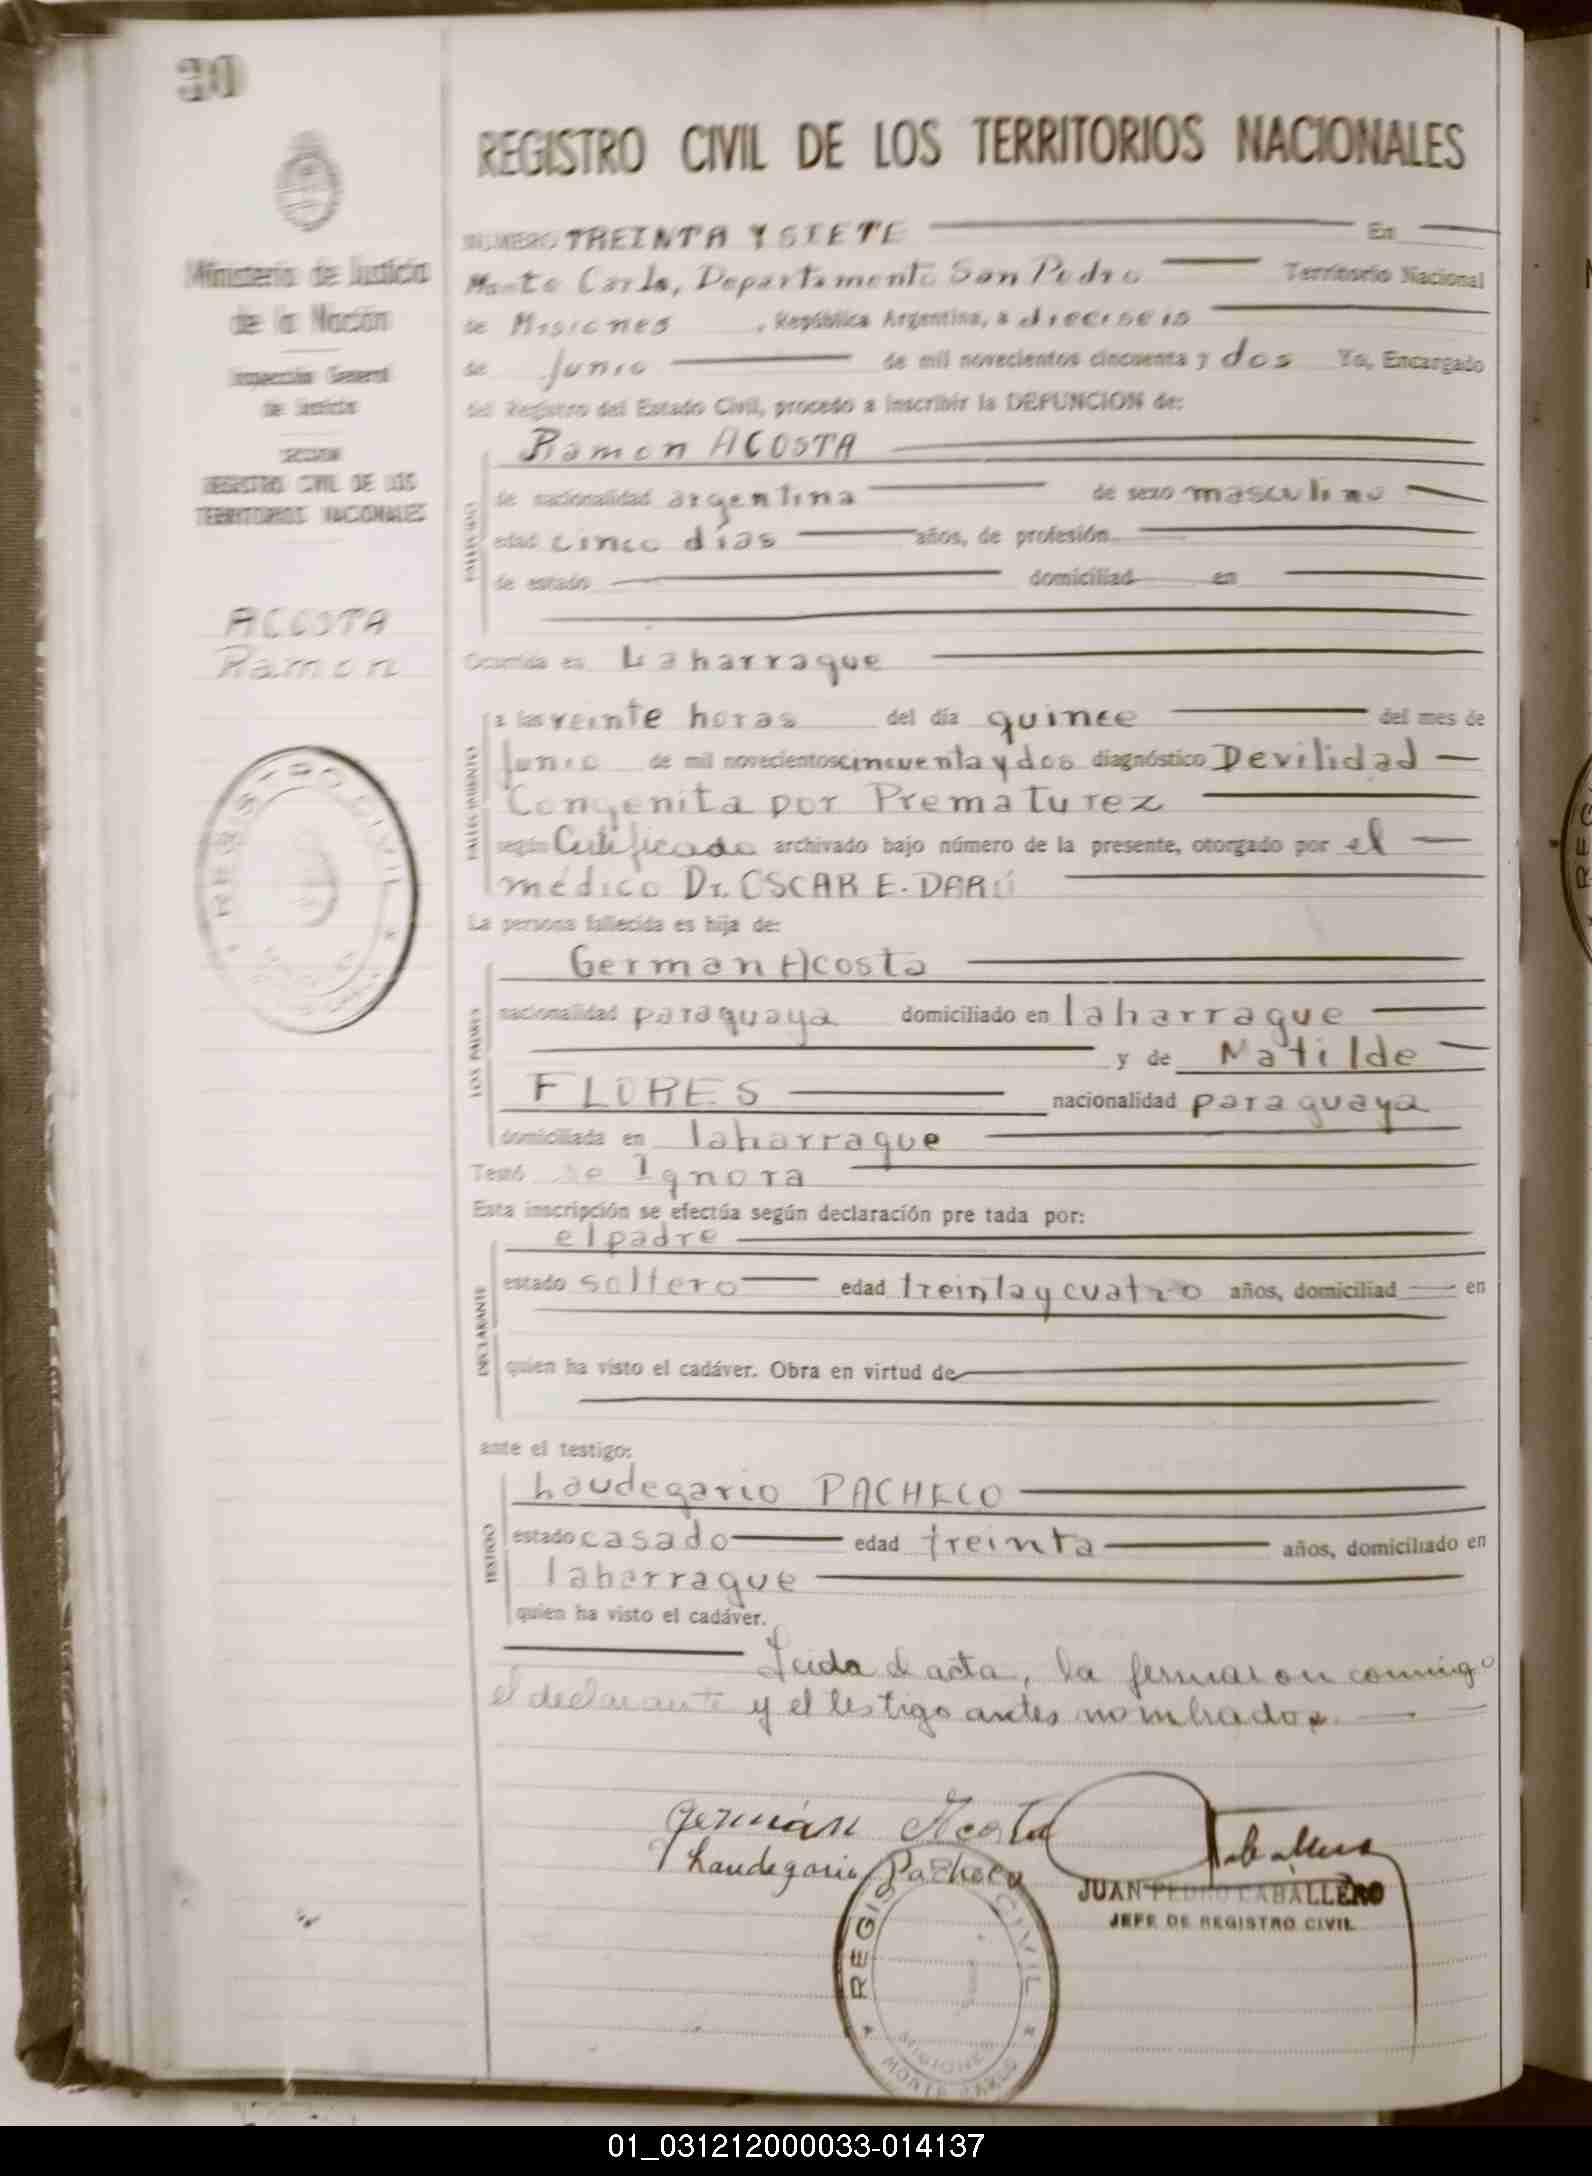 30
REGISTRO CIVIL DE LOS TERRITORIOS NACIONALES
Ministerio de Justicia
de la Nación
Inspección General
de Justicia
SECCION
REGISTRO CIVIL DE LOS
TERRITORIOS NACIONALES
ACOSTA
Ramon
REGISTRO CIVIL
NUMERO TREINTA Y SIETE En
Monte Carlo, Departamento San Pedro Territorio Nacional
de Misiones, República Argentina, a dieciseis
de Junio de mil novecientos cincuenta y dos Yo, Encargado
del Registro del Estado Civil, procedo a inscribir la DEFUNCION de:
FALLECIDO
Ramon ACOSTA
de nacionalidad argentina de sexo masculino
edad cinco días años, de profesión
de estado domiciliad en
Ocurrida en Laharrague
FALLECIMIENTO
a las veinte horas del día quince del mes de
Junio de mil novecientos cincuenta y dos diagnóstico Devilidad
Congenita por Prematurez
según Certificado archivado bajo número de la presente, otorgado por el
médico Dr. OSCAR E. DARÚ
La persona fallecida es hija de:
LOS PADRES
German Acosta
nacionalidad paraguaya domiciliado en laharrague
y de Matilde
FLORES nacionalidad paraguaya
domiciliada en laharrague
Testó se Ignora
Esta inscripción se efectúa según declaración pre tada por:
DECLARANTE
el padre
estado soltero edad treinta y cuatro años, domiciliad en
quien ha visto el cadáver. Obra en virtud de
ante el testigo:
TESTIGO
Laudegario PACHECO
estado casado edad treinta años, domiciliado en
laharrague
quien ha visto el cadáver.
Leida el acta, la firmaron conmigo
el declarante y el testigo antes nombrados.
Germán Acosta
Laudegario Pacheco
Caballero
JUAN PEDRO CABALLERO
JEFE DE REGISTRO CIVIL
REGISTRO CIVIL
MISIONES
MONTE CARLO
01_031212000033-014137